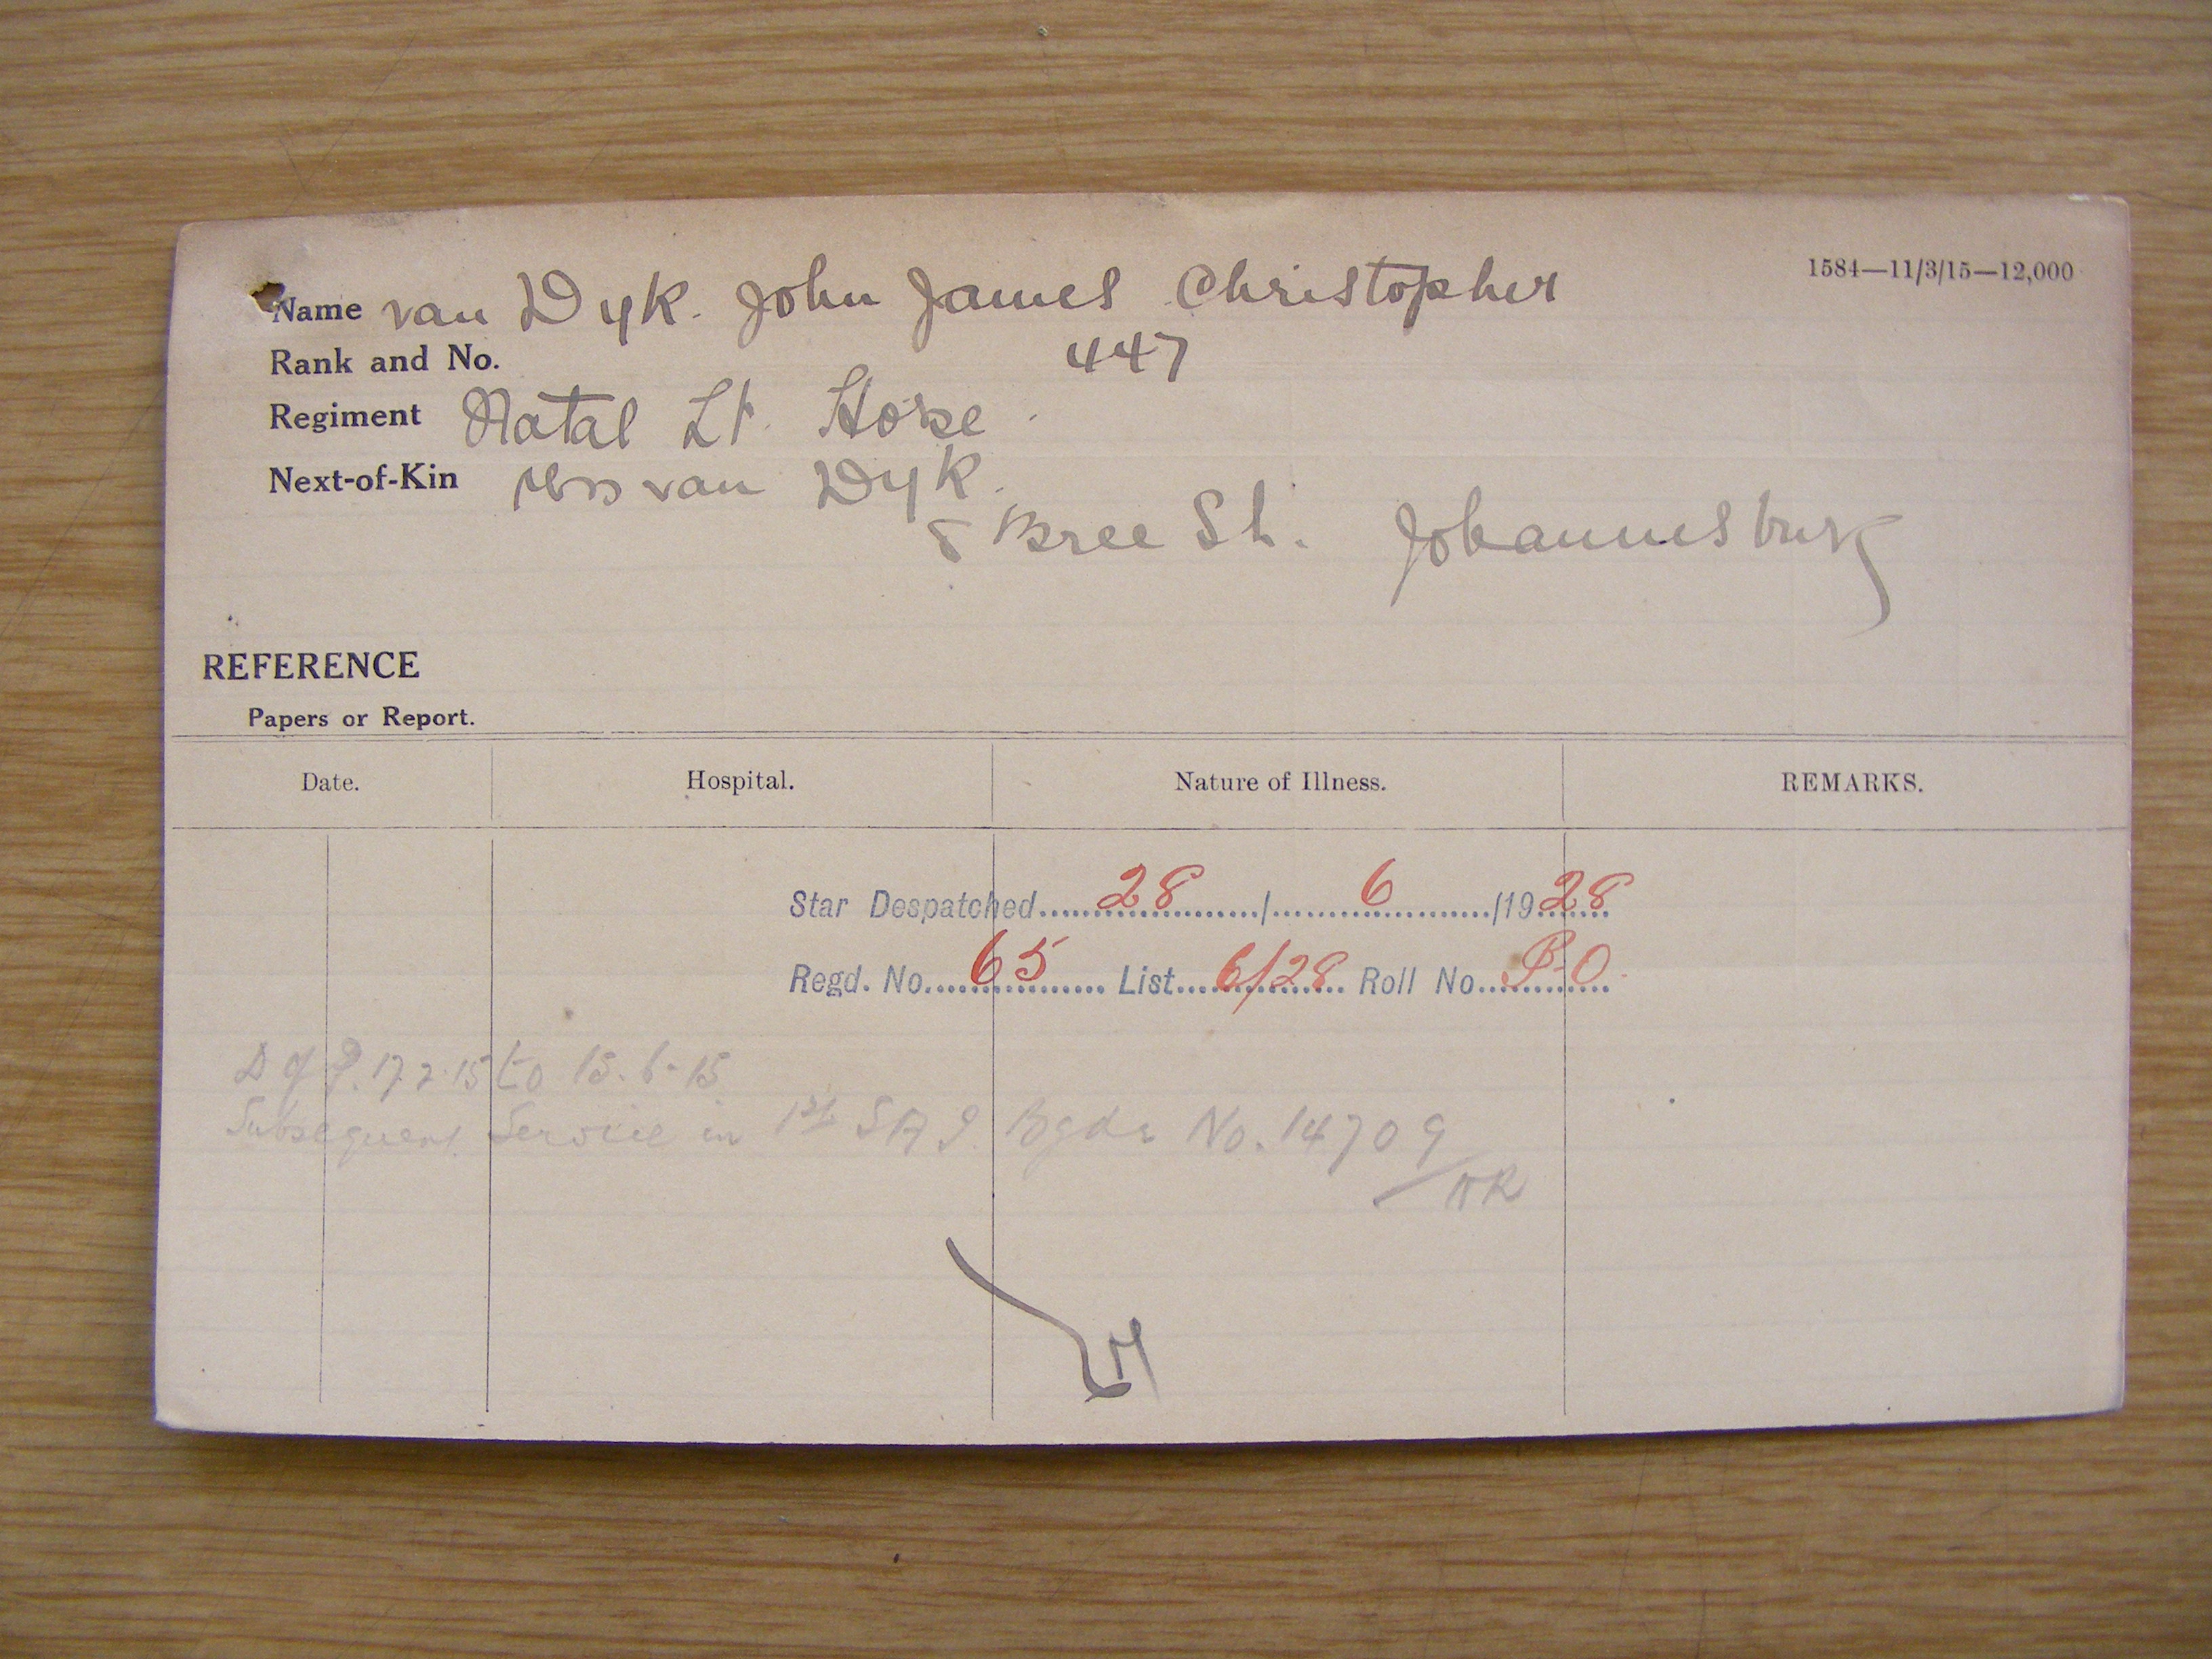 1584—11/3/15—12,000
Name van Dyk. John James Christopher
Rank and No. 447
Regiment Natal Lt. Horse
Next-of-Kin Mrs van Dyk.
8 Bree St. Johannesburg
REFERENCE
Papers or Report.
Date. Hospital. Nature of Illness. REMARKS.
Star Despatched 28 / 6 /1928
Regd. No. 65 List 6/28 Roll No. B-O.
D of P. 17.2.15 to 15.6.15
Subsequent Service in 1st SAI Bgde No. 14709